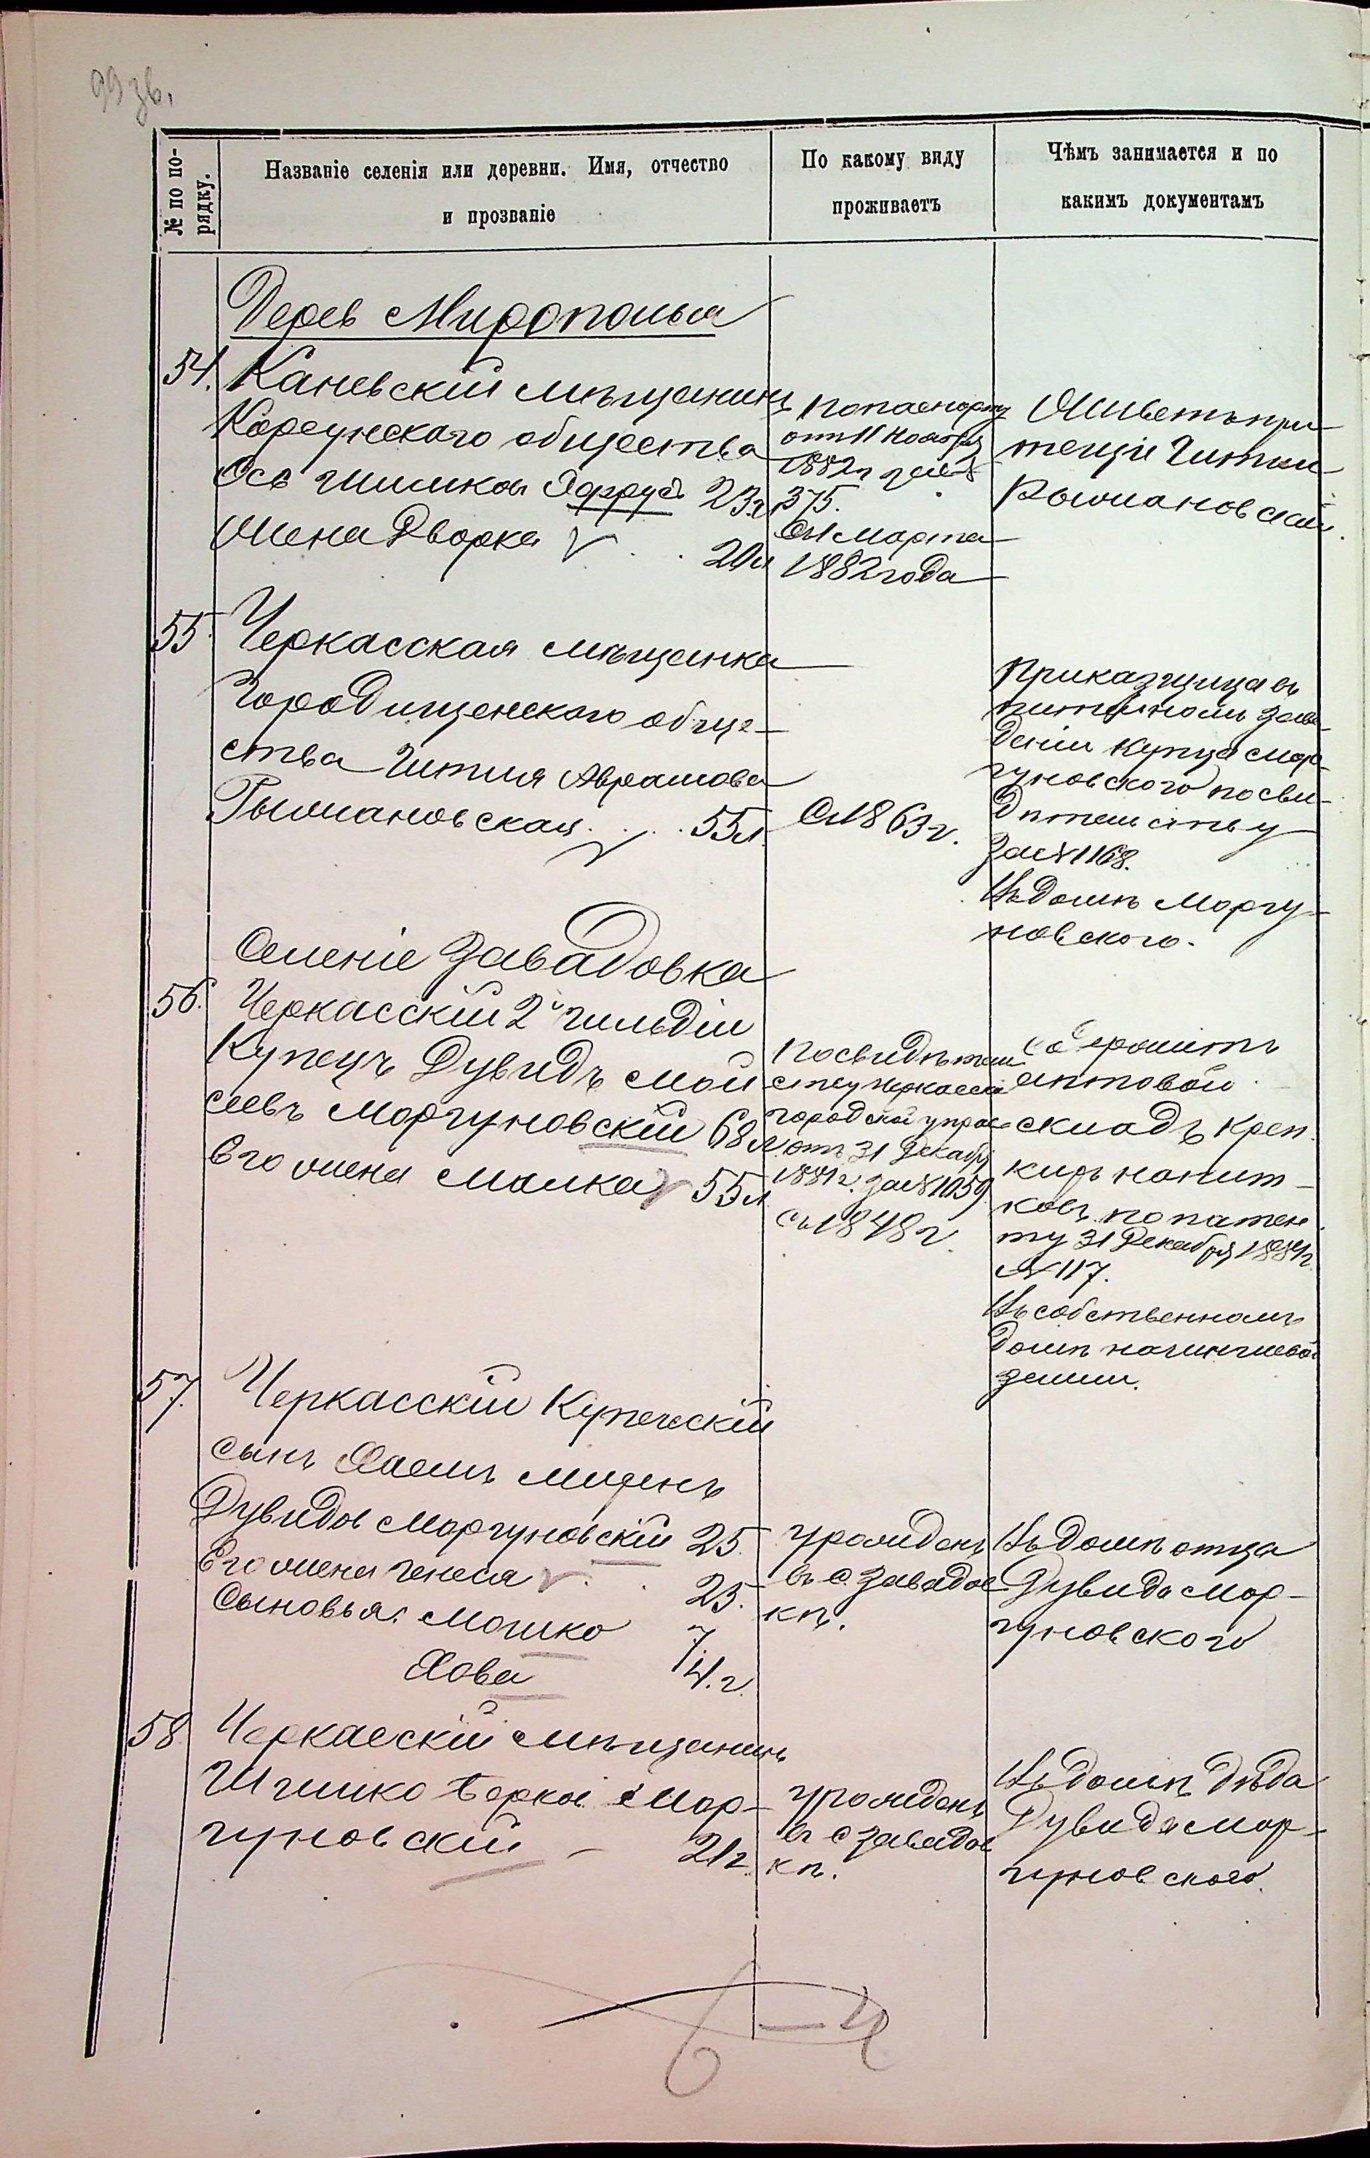 99 зв.
№ по по-
рядку.
Названіе селенія или деревни. Имя, отчество
и прозваніе
По какому виду
проживаетъ
Чѣмъ занимается и по
какимъ документамъ
Дерев Мирополья
54.
Каневскій мѣщанинъ
Корсунскаго общества
Ось Шмилков 23 г
Жена Дворка 20 л
По паспорту
отъ 11 Ноября
1882 г за №
375.
Съ Марта
1882 года
Живетъ при
тещи Гитли
Рымановской.
55
Черкасская мѣщанка
Городищенского обще-
ства Гитля Аврамова
Рымановская 55 л.
Съ 1863 г.
Приказщица въ
питейномъ заве-
деніи купца Мор-
гуновского по сви-
дѣтельству
за № 1168.
Въ домѣ Моргу-
новского.
Селеніе Завадовка
56.
Черкасскій 2й гильдіи
Купецъ Дувидъ Мой
сеевъ Моргуновскій 68 л.
Его жена Малка 55 л.
По свидѣтель
ству Черкасской
городской управы
отъ 31 Декабря
1881 г. за № 1059
съ 1848 г.
Содержитъ
оптовой
складъ креп-
кихъ напит-
ковъ по патен-
ту 31 Декабря 1881 г.
№ 117.
Въ собственномъ
домѣ на чиншевой
земли.
57.
Черкасскій Купеческій
сынъ Хаемъ
Дувидов Моргуновскій 25
Его жена Генеся 25.
Сыновья: Мошко 7
Хова 4. г.
Урожденъ
въ с. Завадов
кѣ.
Въ домѣ отца
Дувида Мор-
гуновского
58
Черкасскій мѣщанинъ
Шмилко Берков Мор-
гуновскій - 21 г.
Урожденъ
въ с Завадов
кѣ.
Въ домѣ дѣда
Дувида Мор-
гуновского.